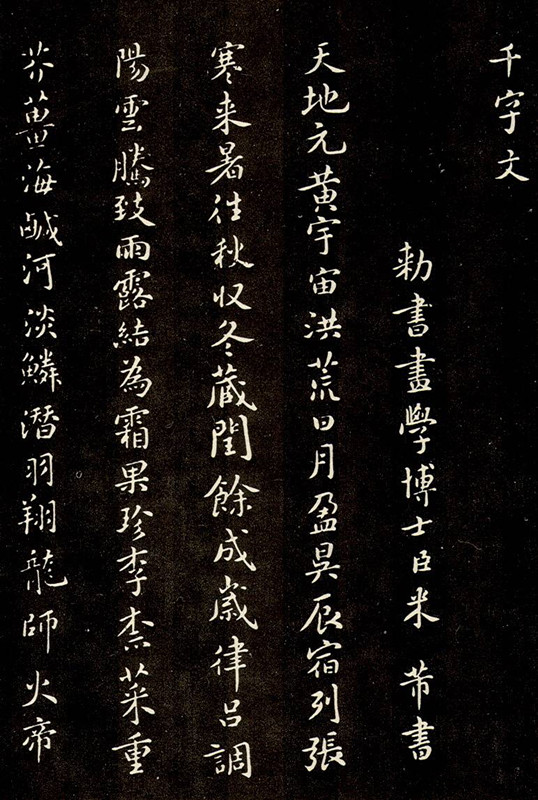 千字文
勅書畫學博士臣米芾書
天地元黃宇宙洪荒日月盈昃辰宿列張
寒来暑往秋収冬蔵閏餘成歲律吕調
陽雲騰致雨露結為霜果珍李柰菜重
芥薑海鹹河淡鱗潛羽翔龍師火帝